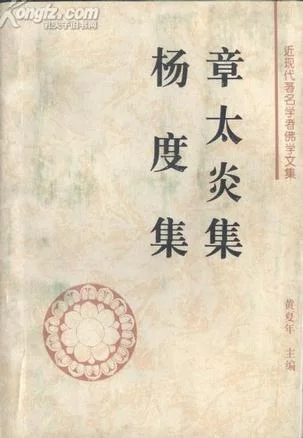 Kongfz.com
孔夫子旧书网
近现代著名学者佛学文集
章太炎集
杨度集
黄夏年 主编